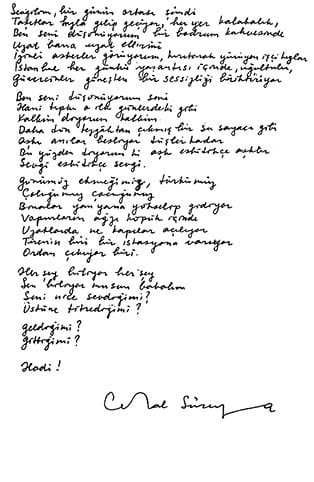 Sevgilim, bir günün ortası şimdi
Taksiler hızla gelip geçiyor, her yer kalabalık,
Ben seni düşünüyorum bir bodrum kahvesinde
Uzat bana uzat ellerini
İzinli askerler görüyorum, kırıtarak yürüyen işçi kızlar
İstanbul her günkü yaşantısı içinde, uğultulu,
Güvercinler güneşten bir sessizliği biriktiriyor

Ben seni düşünüyorum seni
Hani tıpkı o ilk günlerdeki gibi
Kalbim diyorum kalbim
Daha dün tezgâhtan çıkmış bir su sayacı gibi
Aşkı anılar besliyor düşler kadar
Bu yüzden diyorum ki aşk eskidikçe aşktır
Sevgi eskidikçe sevgi.

Günümüz ekmeğimiz, türkümüz
Çoluğumuz çocuğumuz
Binalar yan yana yükselip gidiyor
Vapurların ağzı köpük içinde
Uzaklarda ne kapılar açılıyor
Trenin biri bir istasyona varıyor
Ordan çıkıyor biri.

Her şey biliyor her şey
Sen biliyor musun bakalım
Seni nice sevdiğimi?
Üstüne titrediğimi?

Geldiğimi?
Gittiğimi?

Hadi!

Cemal Süreya